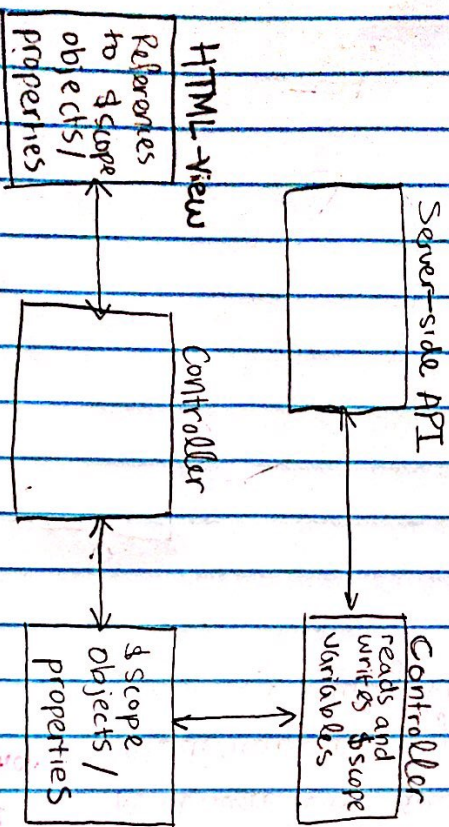 Server-side API
Controller
reads and
writes $scope
variables
HTML-View
References
to $scope
objects/
properties
Controller
$scope
objects/
properties